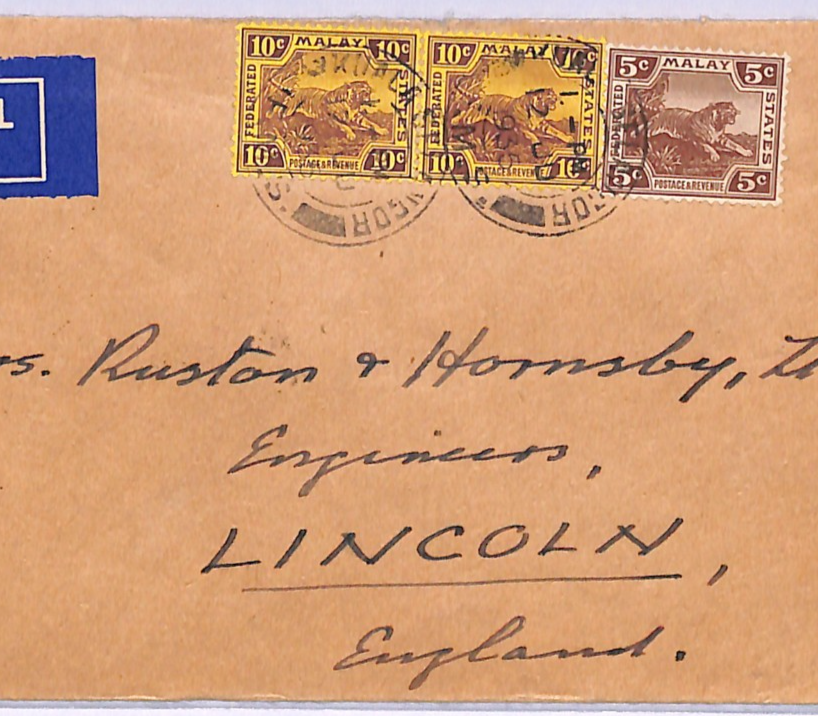 L
10c MALAY 10c
FEDERATED STATES
10c POSTAGE & REVENUE 10c
10c MALAY 10c
FEDERATED STATES
10c POSTAGE & REVENUE 10c
5c MALAY 5c
FEDERATED STATES
5c POSTAGE & REVENUE 5c
rs. Ruston & Hornsby, Lt
Engineers,
LINCOLN,
England.